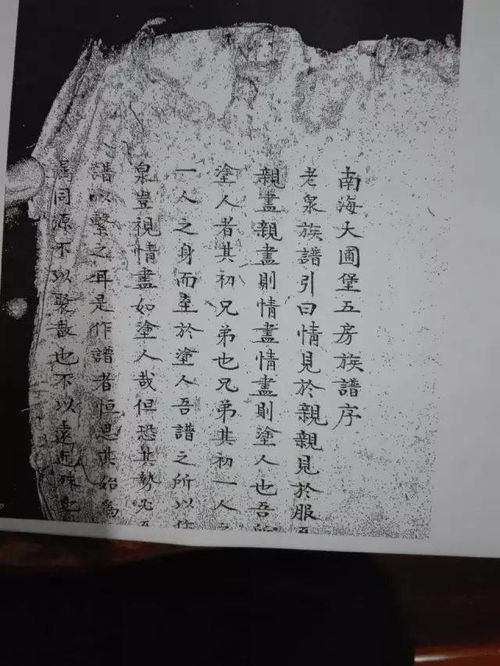 南海大圃堡五房族譜序
老泉族譜引曰情見於親親見於服
親盡親盡則情盡情盡則塗人也吾所
塗人者其初兄弟也兄弟其初一人之
一人之身而至於塗人吾譜之所以作
泉豈視情盡如塗人哉但恐其勢必至
譜以繫之耳是作譜者恒思其始為
同源不以聚散也不以遠近